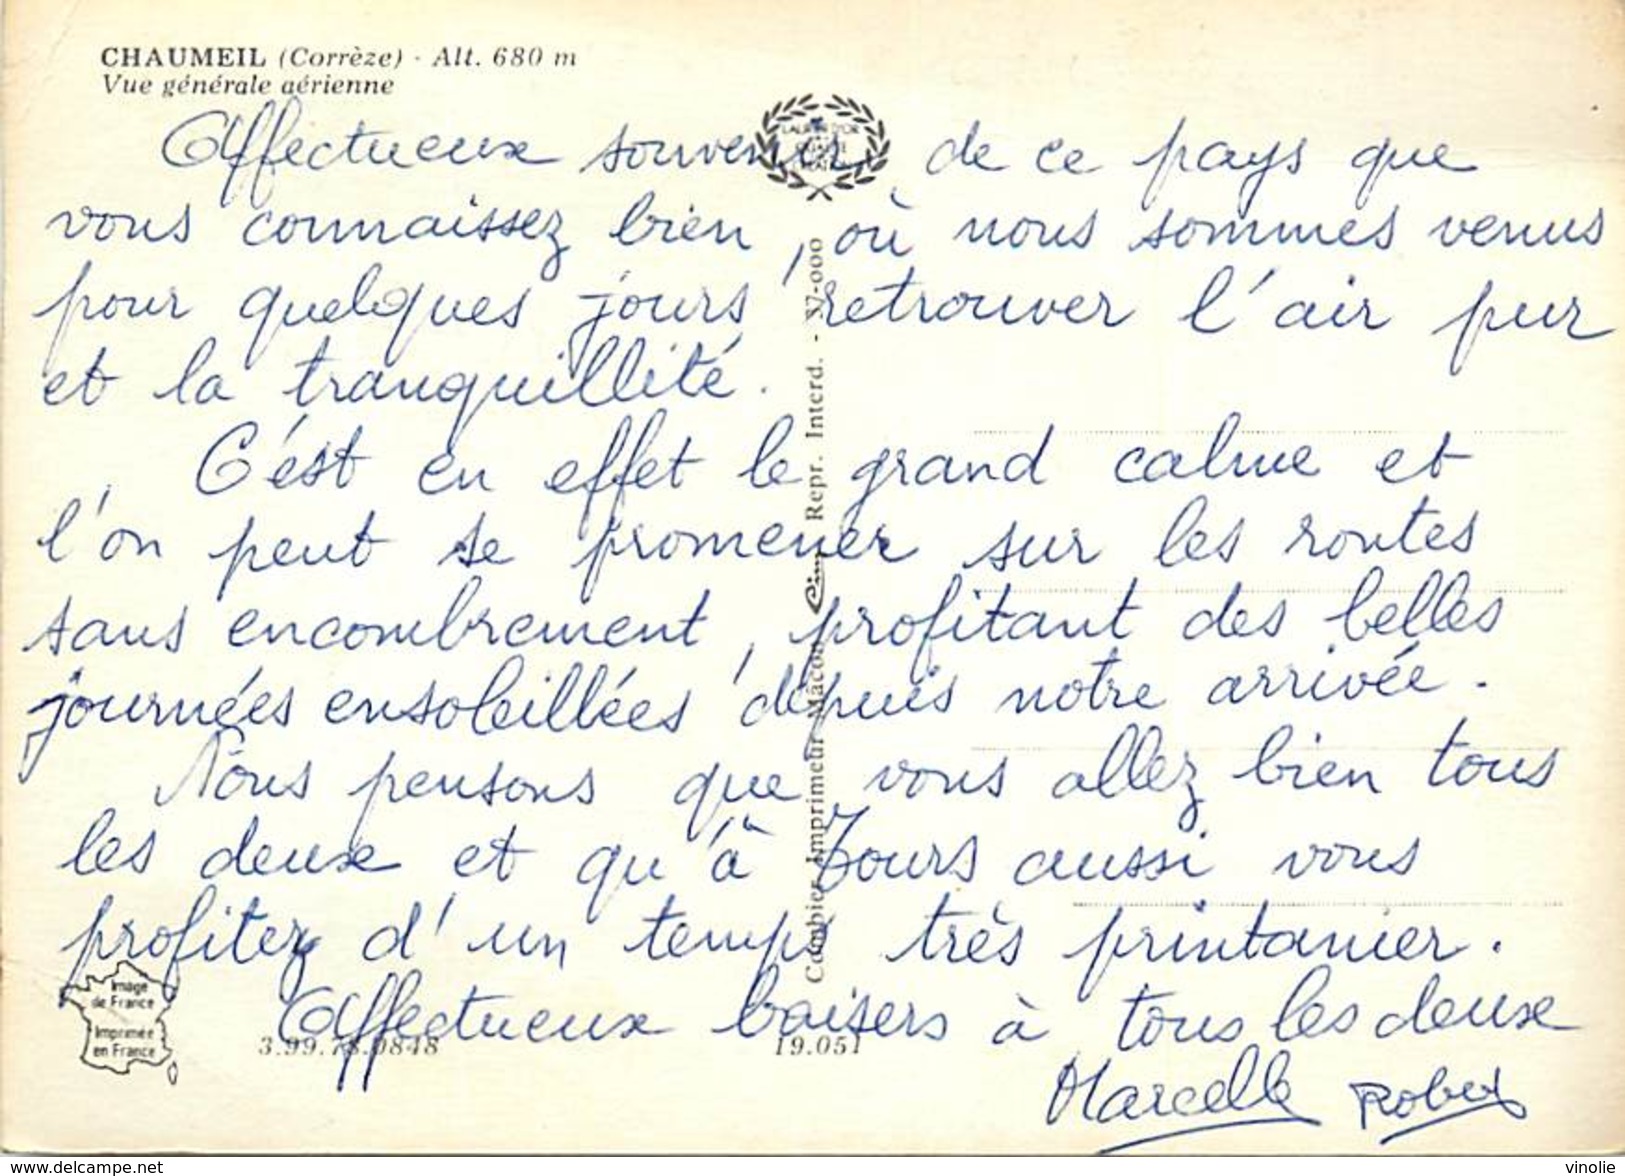 CHAUMEIL (Corrèze) - Alt. 680 m
Vue générale aérienne
Affectueux souvenir de ce pays que
vous connaissez bien, où nous sommes venus
pour quelques jours retrouver l'air pur
et la tranquillité.
C'est en effet le grand calme et
l'on peut se promener sur les routes
sans encombrement, profitant des belles
journées ensoleillées depuis notre arrivée.
Nous pensons que vous allez bien tous
les deux et qu'à Tours aussi vous
profitez d'un temps très printanier.
Affectueux baisers à tous les deux
Marcelle Robert
Combier Imprimeur Mâcon Cim Repr. Interd. -
Image
de France
Imprimée
en France
3.99.78.0848
19.051
www.delcampe.net
vinolie